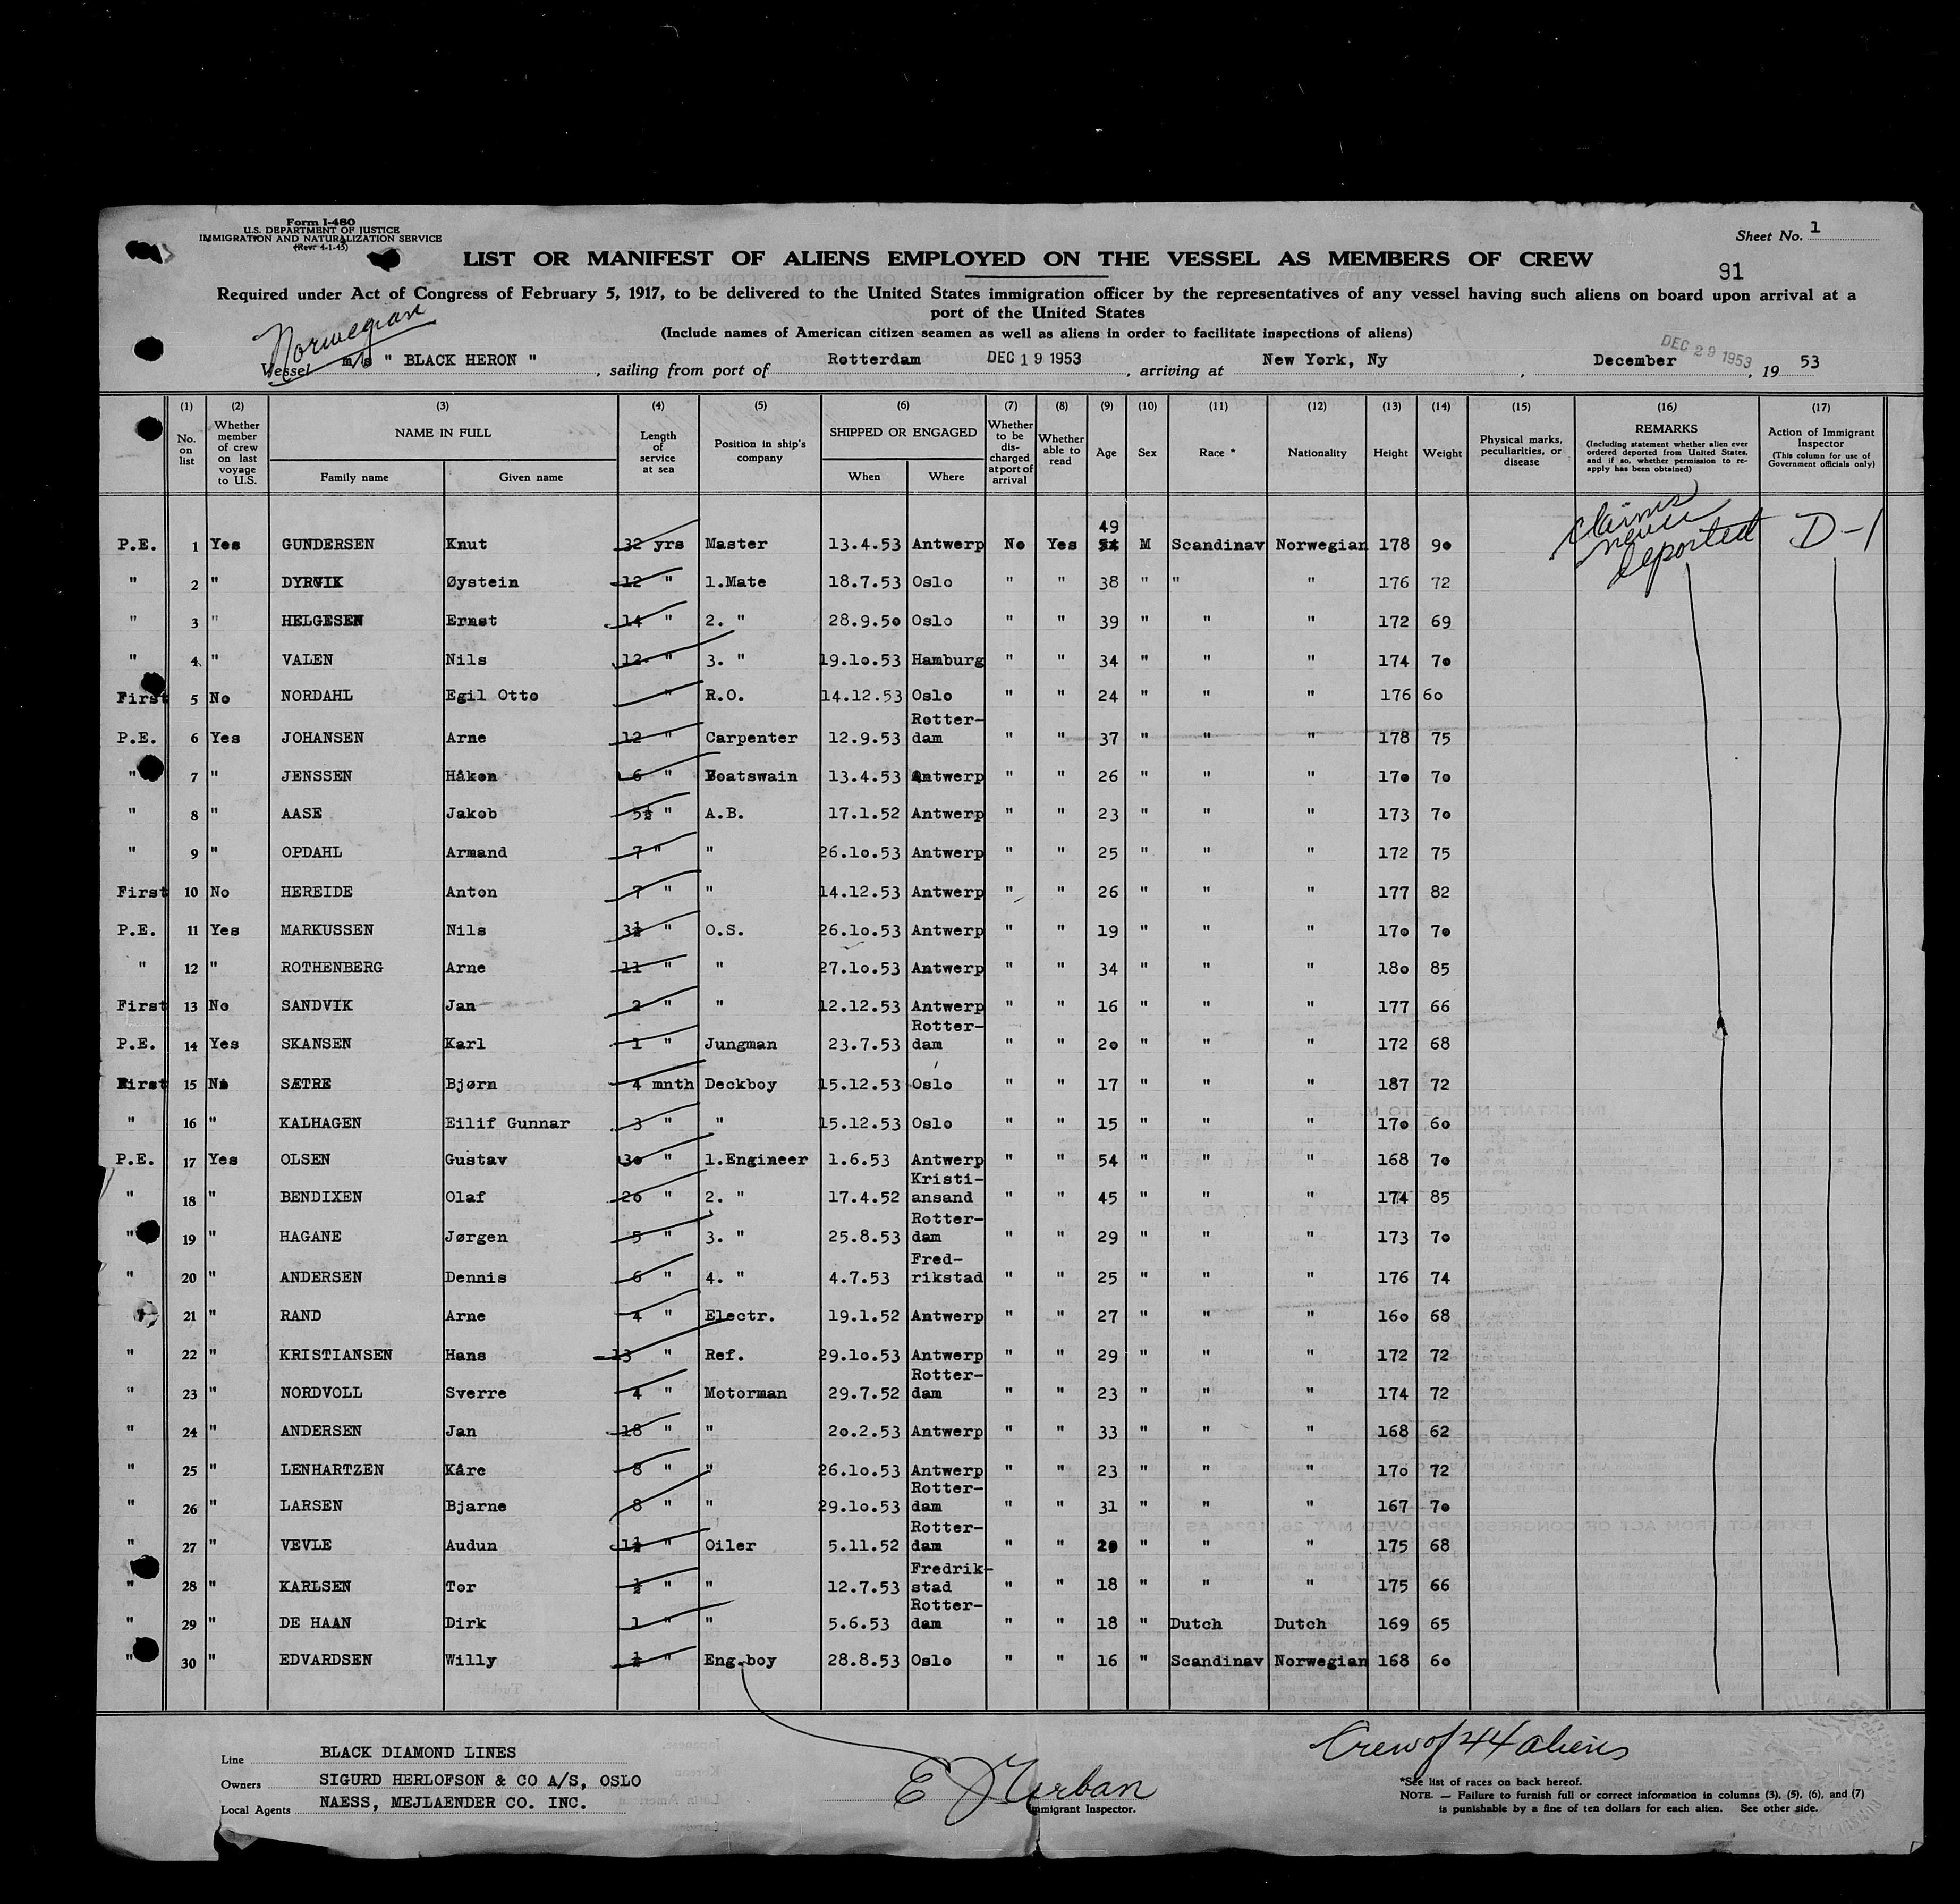 Form I-480
U.S. DEPARTMENT OF JUSTICE
IMMIGRATION AND NATURALIZATION SERVICE
(Rev. 4-1-45)
Sheet No. 1
LIST OR MANIFEST OF ALIENS EMPLOYED ON THE VESSEL AS MEMBERS OF CREW
91
Required under Act of Congress of February 5, 1917, to be delivered to the United States immigration officer by the representatives of any vessel having such aliens on board upon arrival at a
port of the United States
(Include names of American citizen seamen as well as aliens in order to facilitate inspections of aliens)
Norwegian
Vessel m/s " BLACK HERON " , sailing from port of Rotterdam DEC 19 1953 , arriving at New York, Ny , December DEC 29 1953 , 19 53
(1) (2) (3) (4) (5) (6) (7) (8) (9) (10) (11) (12) (13) (14) (15) (16) (17)
No. on list
Whether member of crew on last voyage to U.S.
NAME IN FULL
Family name Given name
Length of service at sea
Position in ship's company
SHIPPED OR ENGAGED
When Where
Whether to be discharged at port of arrival
Whether able to read
Age Sex Race * Nationality Height Weight
Physical marks, peculiarities, or disease
REMARKS
(Including statement whether alien ever ordered deported from United States, and if so, whether permission to re-apply has been obtained)
Action of Immigrant Inspector
(This column for use of Government officials only)
claims never deported D-1
49
P.E. 1 Yes GUNDERSEN Knut 32 yrs Master 13.4.53 Antwerp No Yes 54 M Scandinav Norwegian 178 90
" 2 " DYRVIK Øystein 12 " 1.Mate 18.7.53 Oslo " " 38 " " " 176 72
" 3 " HELGESEN Ernst 14 " 2. " 28.9.50 Oslo " " 39 " " " 172 69
" 4 " VALEN Nils 12 " 3. " 19.10.53 Hamburg " " 34 " " " 174 70
First 5 No NORDAHL Egil Otto " R.O. 14.12.53 Oslo " " 24 " " " 176 60
P.E. 6 Yes JOHANSEN Arne 12 " Carpenter 12.9.53 Rotter-dam " " 37 " " " 178 75
" 7 " JENSSEN Håkon 6 " Boatswain 13.4.53 Antwerp " " 26 " " " 170 70
" 8 " AASE Jakob 5½ " A.B. 17.1.52 Antwerp " " 23 " " " 173 70
" 9 " OPDAHL Armand 7 " " 26.10.53 Antwerp " " 25 " " " 172 75
First 10 No HEREIDE Anton 7 " " 14.12.53 Antwerp " " 26 " " " 177 82
P.E. 11 Yes MARKUSSEN Nils 3½ " O.S. 26.10.53 Antwerp " " 19 " " " 170 70
" 12 " ROTHENBERG Arne 11 " " 27.10.53 Antwerp " " 34 " " " 180 85
First 13 No SANDVIK Jan 2 " " 12.12.53 Antwerp " " 16 " " " 177 66
P.E. 14 Yes SKANSEN Karl 1 " Jungman 23.7.53 Rotter-dam " " 20 " " " 172 68
First 15 No SÆTRE Bjørn 4 mnth Deckboy 15.12.53 Oslo " " 17 " " " 187 72
" 16 " KALHAGEN Eilif Gunnar 3 " " 15.12.53 Oslo " " 15 " " " 170 60
P.E. 17 Yes OLSEN Gustav 30 " 1.Engineer 1.6.53 Antwerp " " 54 " " " 168 70
" 18 " BENDIXEN Olaf 20 " 2. " 17.4.52 Kristi-ansand " " 45 " " " 174 85
" 19 " HAGANE Jørgen 5 " 3. " 25.8.53 Rotter-dam " " 29 " " " 173 70
" 20 " ANDERSEN Dennis 6 " 4. " 4.7.53 Fred-rikstad " " 25 " " " 176 74
21 " RAND Arne 4 " Electr. 19.1.52 Antwerp " " 27 " " " 160 68
" 22 " KRISTIANSEN Hans 13 " Ref. 29.10.53 Antwerp " " 29 " " " 172 72
" 23 " NORDVOLL Sverre 4 " Motorman 29.7.52 Rotter-dam " " 23 " " " 174 72
" 24 " ANDERSEN Jan 18 " " 20.2.53 Antwerp " " 33 " " " 168 62
" 25 " LENHARTZEN Kåre 8 " " 26.10.53 Antwerp " " 23 " " " 170 72
" 26 " LARSEN Bjarne 8 " " 29.10.53 Rotter-dam " " 31 " " " 167 70
" 27 " VEVLE Audun 1½ " Oiler 5.11.52 Rotter-dam " " 20 " " " 175 68
" 28 " KARLSEN Tor ½ " " 12.7.53 Fredrik-stad " " 18 " " " 175 66
" 29 " DE HAAN Dirk 1 " " 5.6.53 Rotter-dam " " 18 " Dutch Dutch 169 65
" 30 " EDVARDSEN Willy ½ " Eng.boy 28.8.53 Oslo " " 16 " Scandinav Norwegian 168 60
Line BLACK DIAMOND LINES
Owners SIGURD HERLOFSON & CO A/S, OSLO
Local Agents NAESS, MEJLAENDER CO. INC.
Immigrant Inspector.
Crew of 44 aliens
*See list of races on back hereof.
NOTE. — Failure to furnish full or correct information in columns (3), (5), (6), and (7)
is punishable by a fine of ten dollars for each alien. See other side.